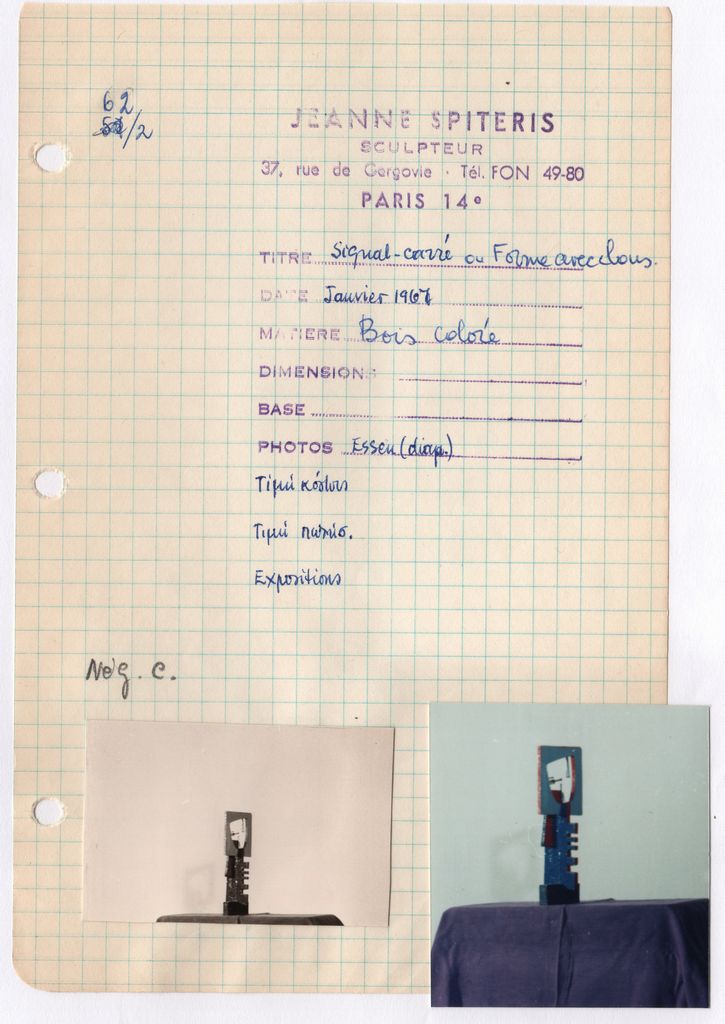 62
/2
JEANNE SPITERIS
SCULPTEUR
37, rue de Gergovie · Tél. FON 49-80
PARIS 14e
TITRE Signal-carré ou Forme avec clous.
DATE Janvier 1967
MATIERE Bois coloré
DIMENSIONS
BASE
PHOTOS Essen (diap.)
Τιμή κόστους
Τιμή
Expositions
Nég. C.